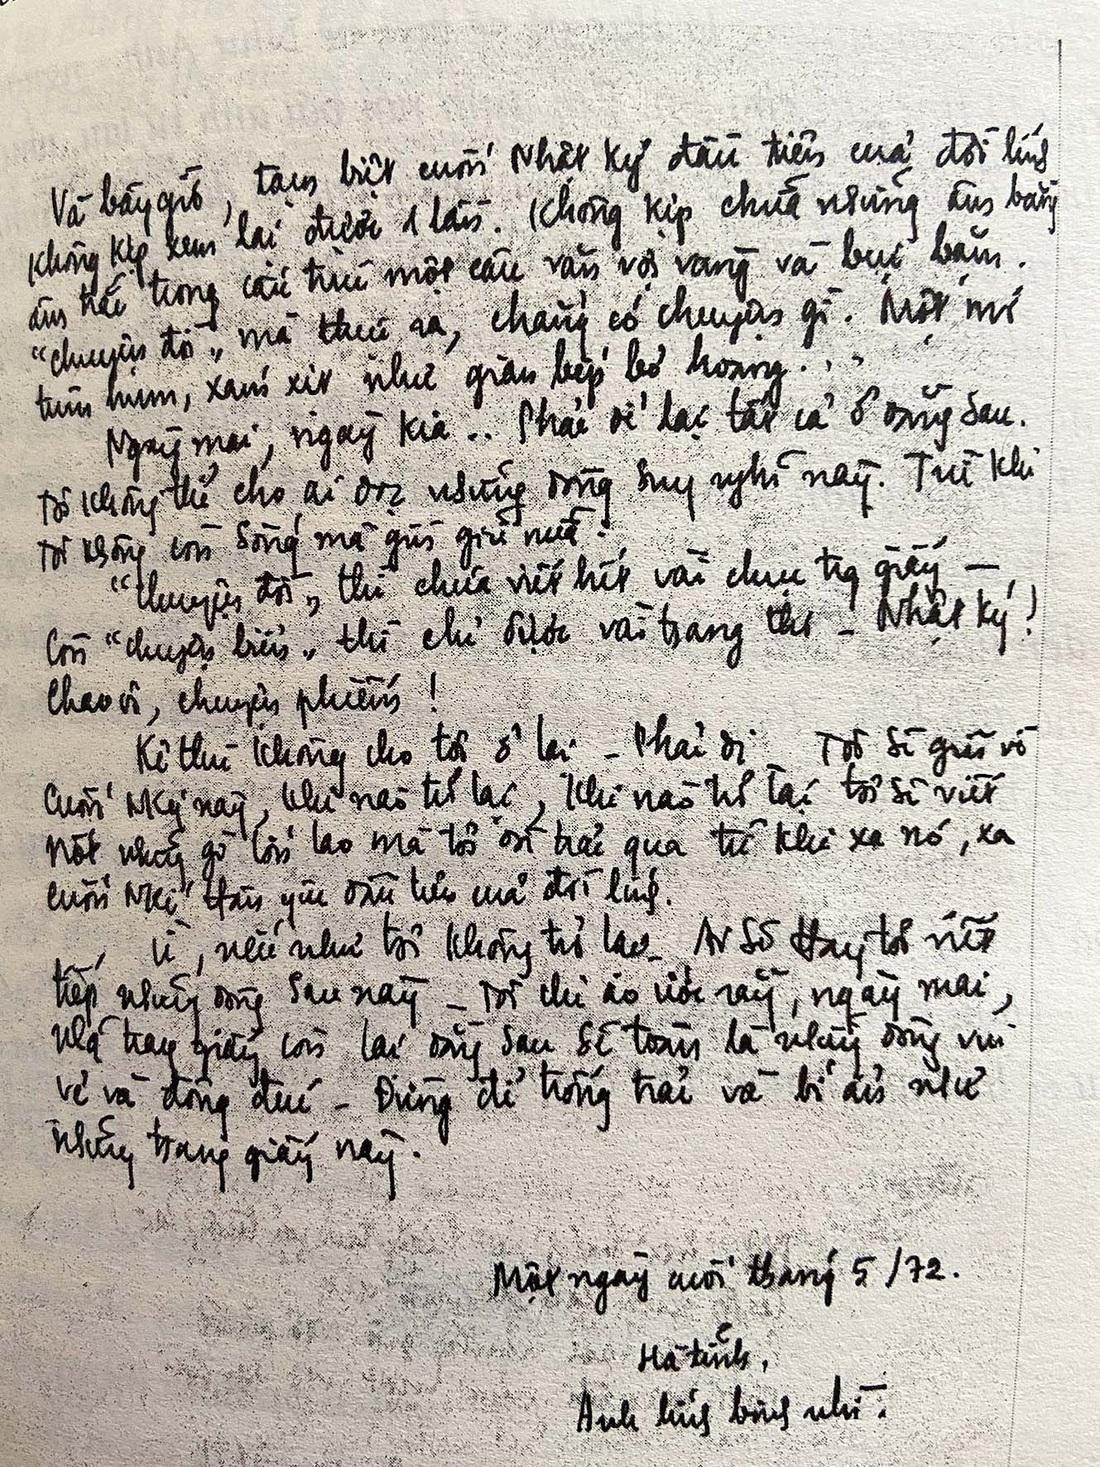 Và bây giờ, tạm biệt cuốn Nhật ký đầu tiên của đời lính
Không kịp xem lại được 1 lần. Không kịp chữa những âm bằng
âm trắc trong cấu trúc một câu văn vội vàng và bực bặm.
"chuyện đời" mà thực ra, chẳng có chuyện gì. Một mớ
tùm hum, xám xịt như gian bếp bỏ hoang...
Ngày mai, ngày kia.. Phải để lại tất cả ở đằng sau.
Tôi không thể cho ai đọc những dòng suy nghĩ này. Trừ khi
tôi không còn sống mà gìn giữ nữa.
"chuyện đời" thì chưa viết hết vài chục trg giấy –
Còn "chuyện biển" thì chỉ được vài trang thư – Nhật ký!
Chao ôi, chuyện phiếm!
Kẻ thù không cho tôi ở lại – Phải đi Tôi sẽ gửi về
cuốn NKý này, khi nào trở lại, khi nào trở lại tôi sẽ viết
nốt những gì lớn lao mà tôi đã trải qua từ khi xa nó, xa
cuốn NKí thân yêu đầu tiên của đời lính.
Ừ, nếu như tôi không trở lại – Ai sẽ thay tôi viết
tiếp những dòng sau này – Tôi chỉ ao ước rằng, ngày mai,
những trang giấy còn lại đằng sau sẽ toàn là những dòng vui
vẻ và đông đúc – Đừng để trống trải và bí ẩn như
những trang giấy này.
Một ngày cuối tháng 5/72.
Hà tĩnh,
Anh lính binh nhì.